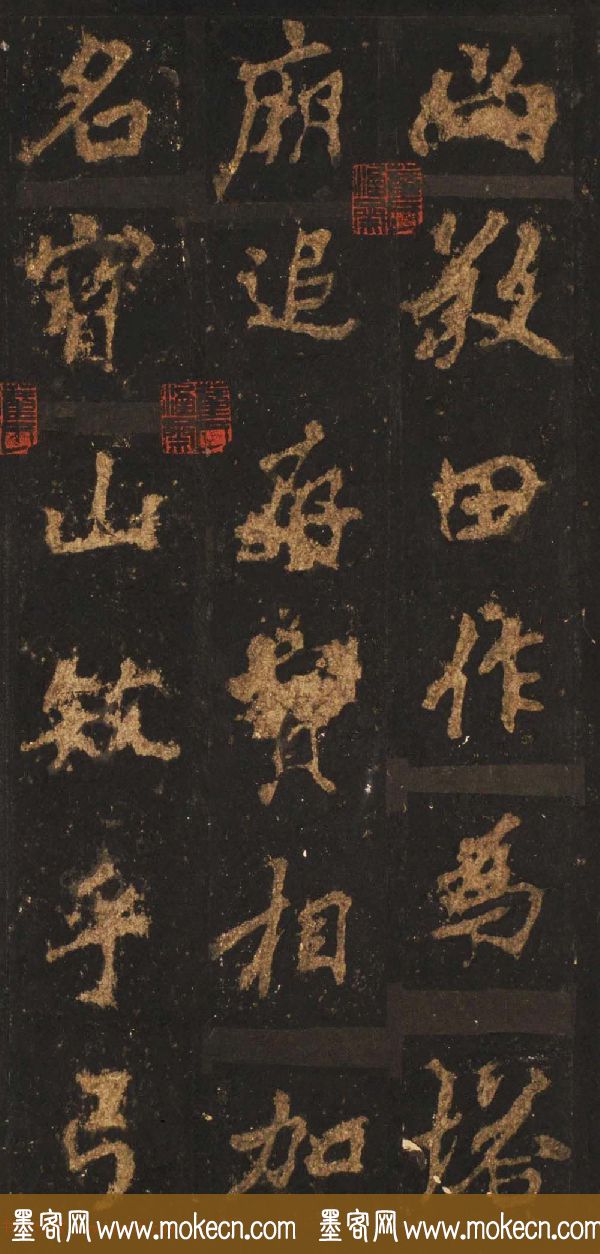 敬田作為塔
廟追存寶相加
名寶山乎弓
墨客网 www.mokecn.com 墨客网 www.mokecn.com